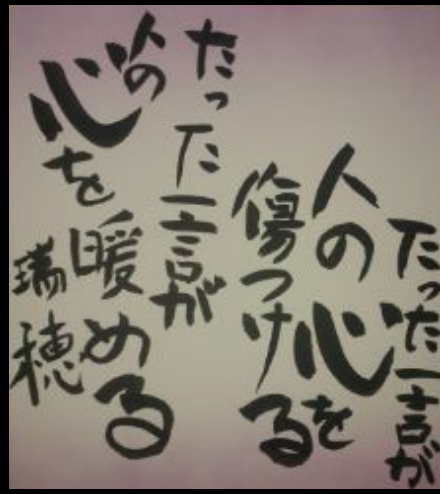 たった一言が
人の心を
傷つける
たった一言が
人の
心を暖める
瑞穂